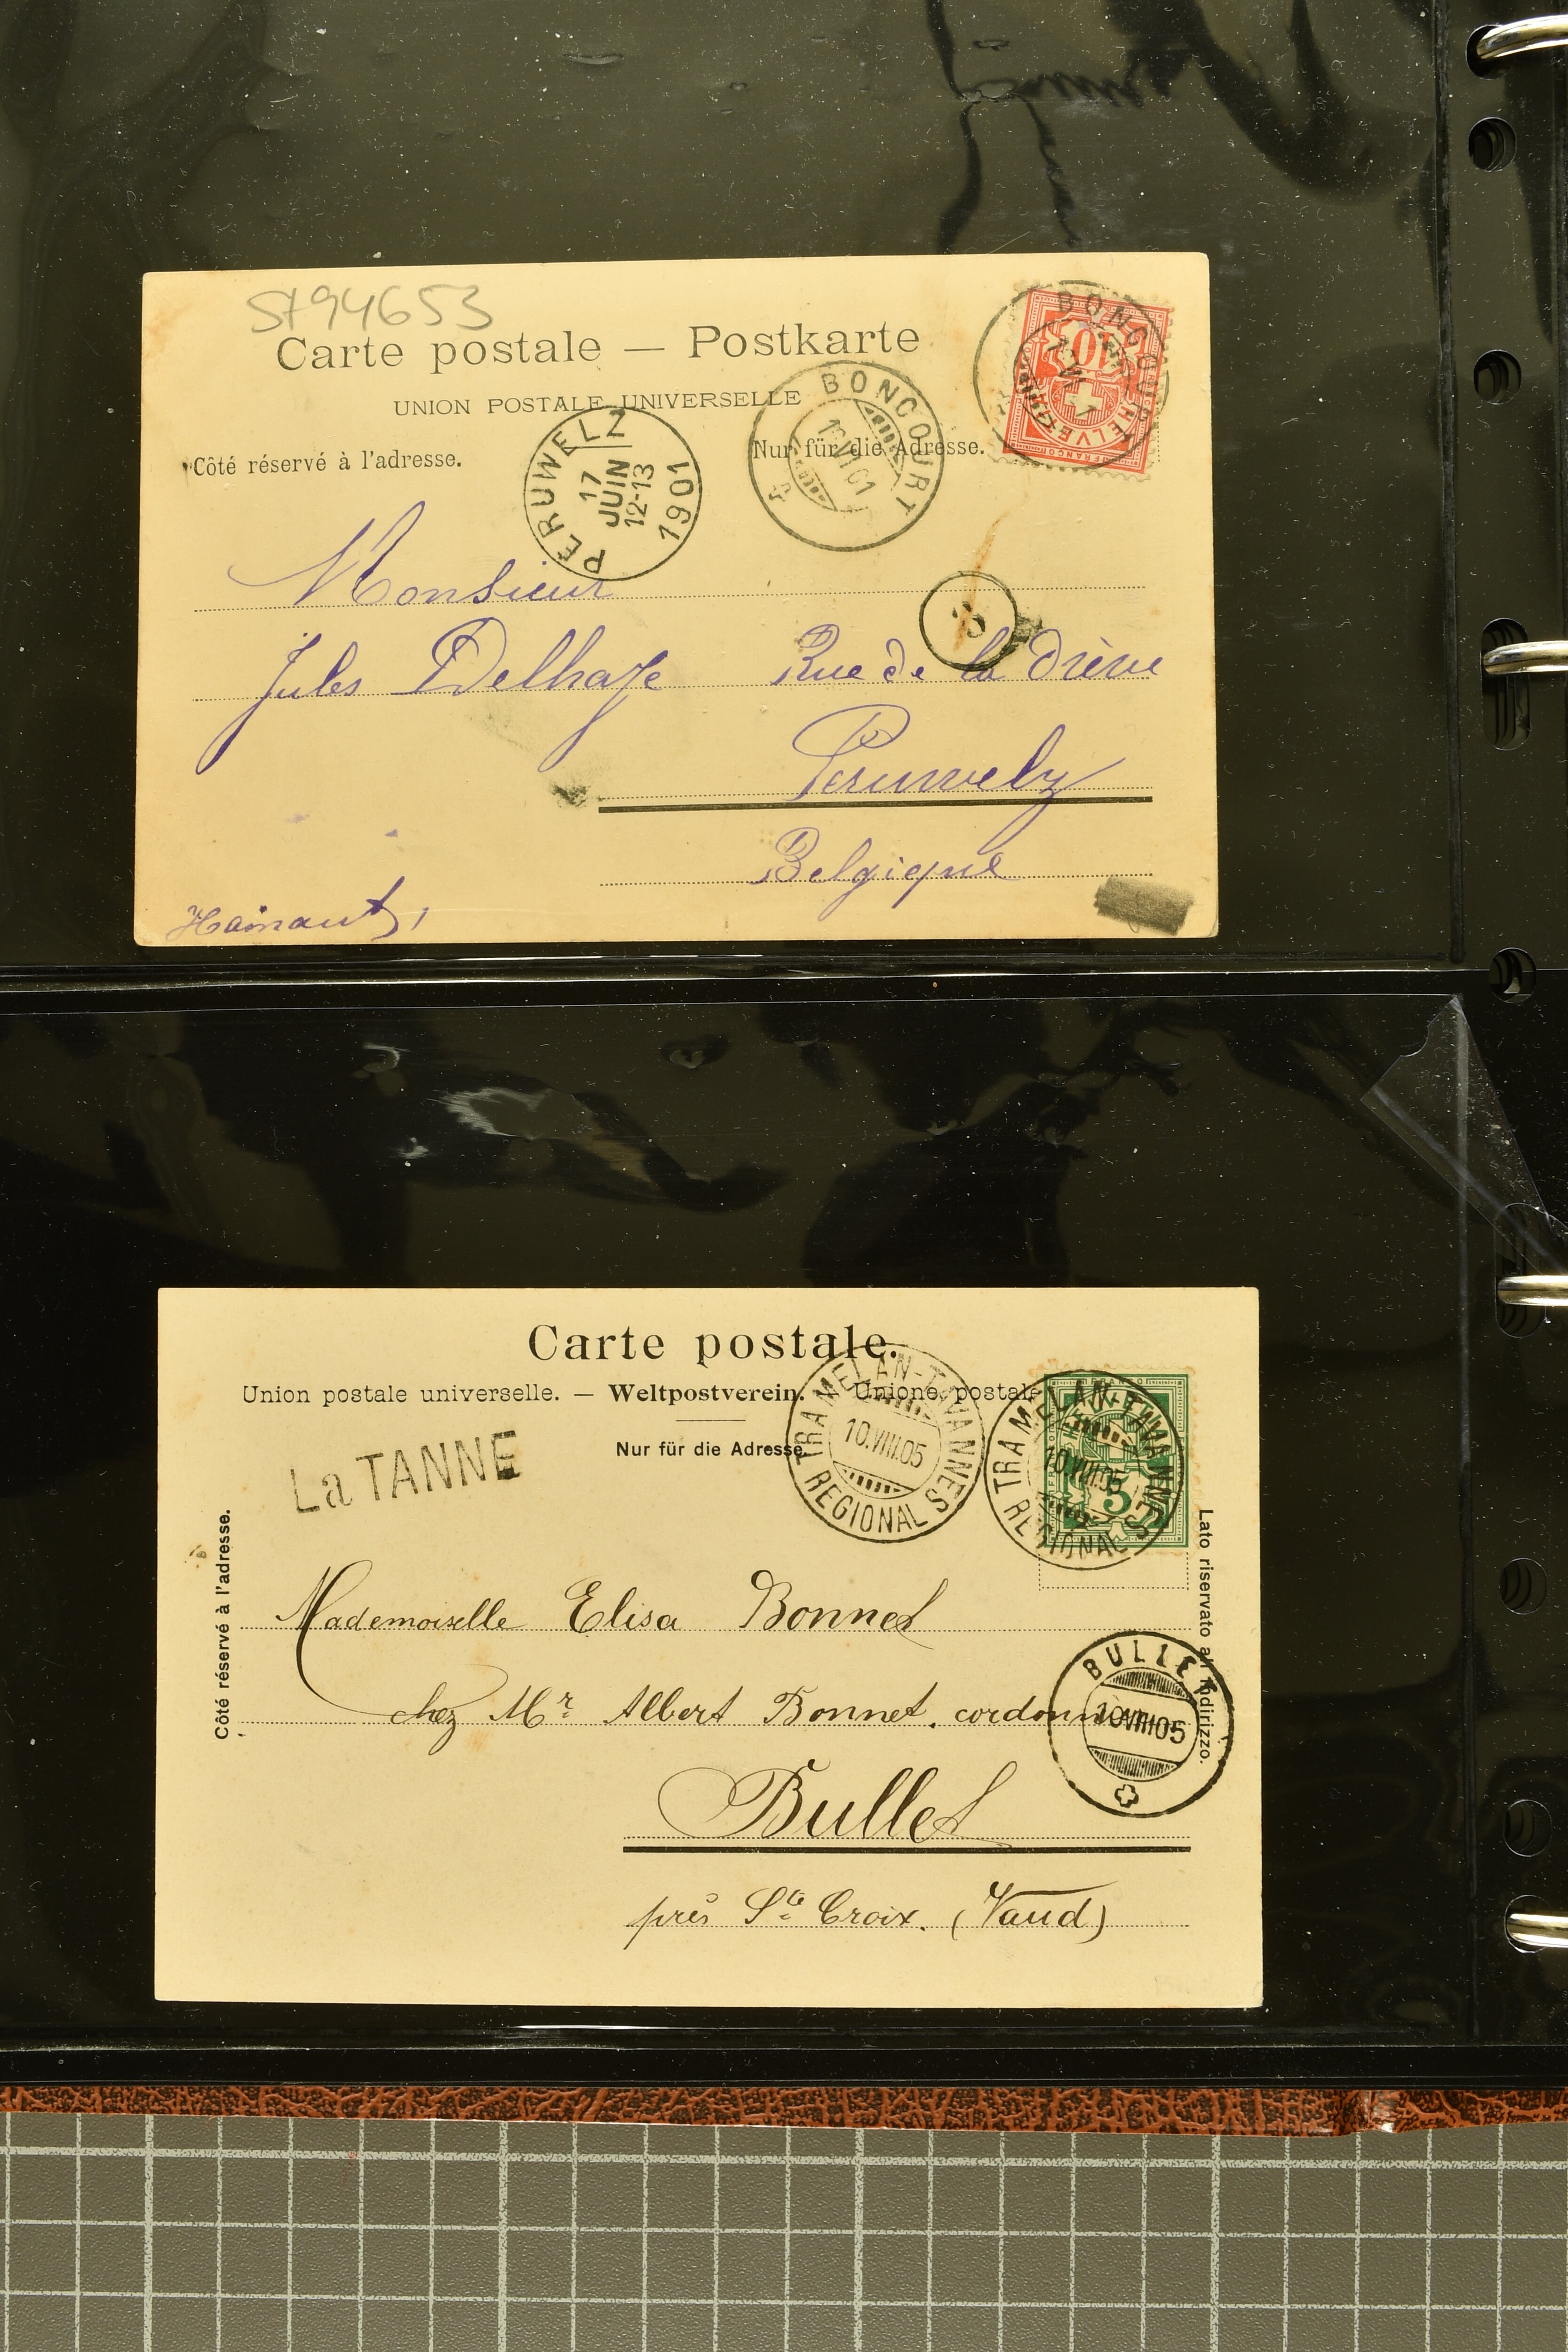 St94653
Carte postale — Postkarte
UNION POSTALE UNIVERSELLE
Côté réservé à l'adresse.
Nur für die Adresse.
BONCOURT
10
HELVETIA
FRANCO
BONCOURT
VI 01
PÉRUWELZ
17
JUIN
12-13
1901
Monsieur
Jules Delhaye Rue de la Drève
Peruwelz
Belgique
Hainaut
Carte postale.
Union postale universelle. — Weltpostverein. — Unione postale
Nur für die Adresse.
La TANNE
TRAMELAN-TAVANNES
10.VIII.05
REGIONAL
TRAMELAN-TAVANNES
10.VIII.05
REGIONAL
FRANCO
5
Côté réservé à l'adresse.
Lato riservato all'indirizzo.
Mademoiselle Elisa Bonnet
chez Mr Albert Bonnet, cordonnier
BULLET
10VIII05
Bullet
près Ste Croix. (Vaud)